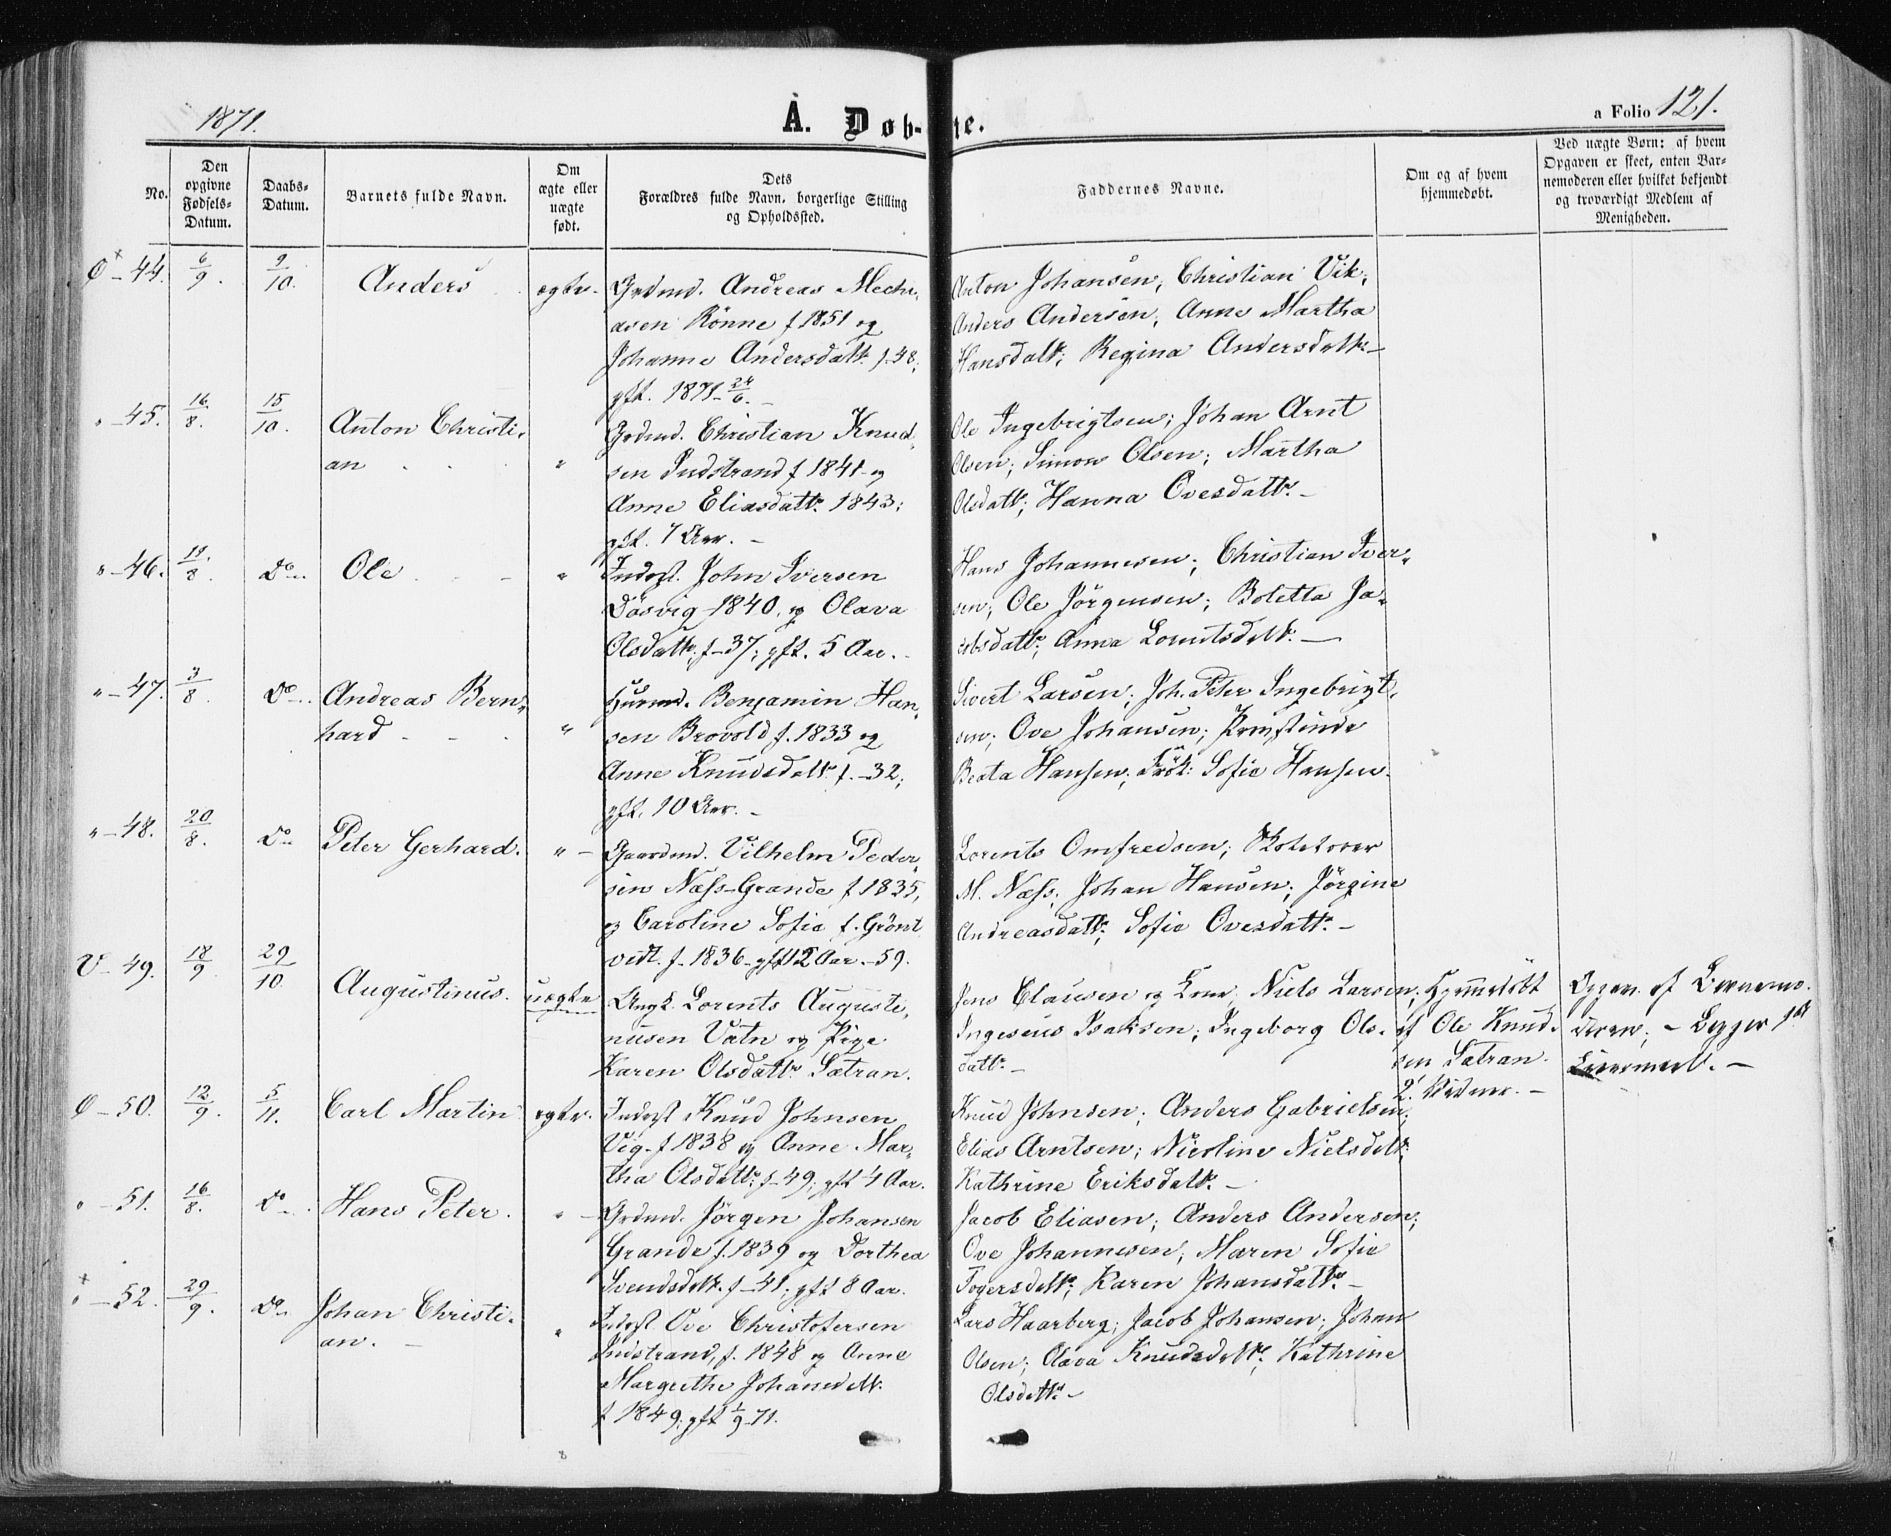 1871.
A. Døb-
ne.
a Folio 121.
No.
Den
opgivne
Fødsels-
Datum.
Daabs-
Datum.
Barnets fulde Navn.
Om
ægte eller
uægte
født.
Dets
Forældres fulde Navn, borgerlige Stilling
og Opholdssted.
Faddernes Navne.
Om og af hvem
hjemmedøbt.
Ved uægte Børn: af hvem
Opgaven er skeet, enten Bar-
nemoderen eller hvilket bekjendt
og troværdigt Medlem af
Menigheden.
O - 44. 6/9. 9/10. Anders ægte. Grdmd. Andreas
asen Rönne f 1851 og
Johanne Andersdatt. f. 48;
gft. 1871 24/6. -
Anton Johansen; Christian Vik;
Anders Andersen; Anne Martha
Hansdatt; Regina Andersdatt. -
" - 45. 16/8. 15/10. Anton Christi-
an " Grdmd. Christian Knud-
sen Indstrand f 1841 og
Anne Eliasdatt. 1843;
gft. 7 Aar. -
Ole Ingebrigtsen; Johan Arnt
Olsen; Simon Olsen; Martha
Olsdatt; Hanna Ovesdatt. -
" - 46. 19/8. Do. Ole " Inderst. John Iversen
Dösvig 1840, og Olava
Olsdatt. f - 37; gft. 5 Aar. -
Hans Johannesen; Christian Iver-
sen; Ole Jörgensen; Boletta Ja-
cobsdatt; Anna Lorentsdatt. -
" - 47. 3/8. Do. Andreas Bern-
hard " Husmd. Benjamin Han-
sen Brovold f. 1833 og
Anne Knudsdatt. f. - 32;
gft. 10 Aar. -
Sivert Larsen; Joh. Peter Ingebrigt-
sen; Ove Johansen;
Beata Hansen; Frök: Sofie Hansen.
" - 48. 20/8. Do. Peter Gerhard. " - Gaardmd. Vilhelm Peder-
sen Næss-Grande f 1835,
og Caroline Sofie f. Grönt
vedt. f. 1836 gft 12 Aar. - 59.
Lorents Omfredsen;
M. Næss; Johan Hansen; Jörgine
Andreasdatt; Sofie Ovesdatt. -
V - 49. 18/9. 29/10 Augustinus. uægte Ungk. Lorents Augusti-
nusen Vatn og Pige
Karen Olsdatt. Sætran.
Jens Clausen og Kone, Niels Larsen;
Ingeseus Isaksen; Ingeborg Ols-
datt. -
Hjemmedöbt
af Ole Knud-
sen Sætran.
2 Vidner. -
Opgav. af Barnemo-
deren; - Begges 1st
Leiermaal. -
O - 50. 12/9. 5/11. Carl Martin ægte. Inderst Knud Johnsen
Vig. f 1838 og Anne Mar-
tha Olsdatt. f - 49; gft 4 Aar.
Knud Johnsen; Anders Gabrielsen;
Elias Arntsen; Nicoline Nielsdatt.
Kathrine Eriksdatt. -
" - 51. 16/8. Do. Hans Peter. " - Grdmd. Jörgen Johansen
Grande f. 1839 og Dorthea
Svendsdatt. f - 41; gft 8 Aar.
Jacob Eliasen; Anders Andersen;
Ove Johannesen; Maren Sofie
Togersdatt; Karen Johansdatt. -
" - 52. 29/9. Do. Johan Christi-
an. - " Inderst Ove Christofersen
Indstrand, f. 1848 og Anne
Margrethe Johansdatt.
f 1849; gft 1/9 71.
Lars Haarberg; Jacob Johansen; Johan
Olsen; Olava Knudsdatt; Kathrine
Olsdatt. -